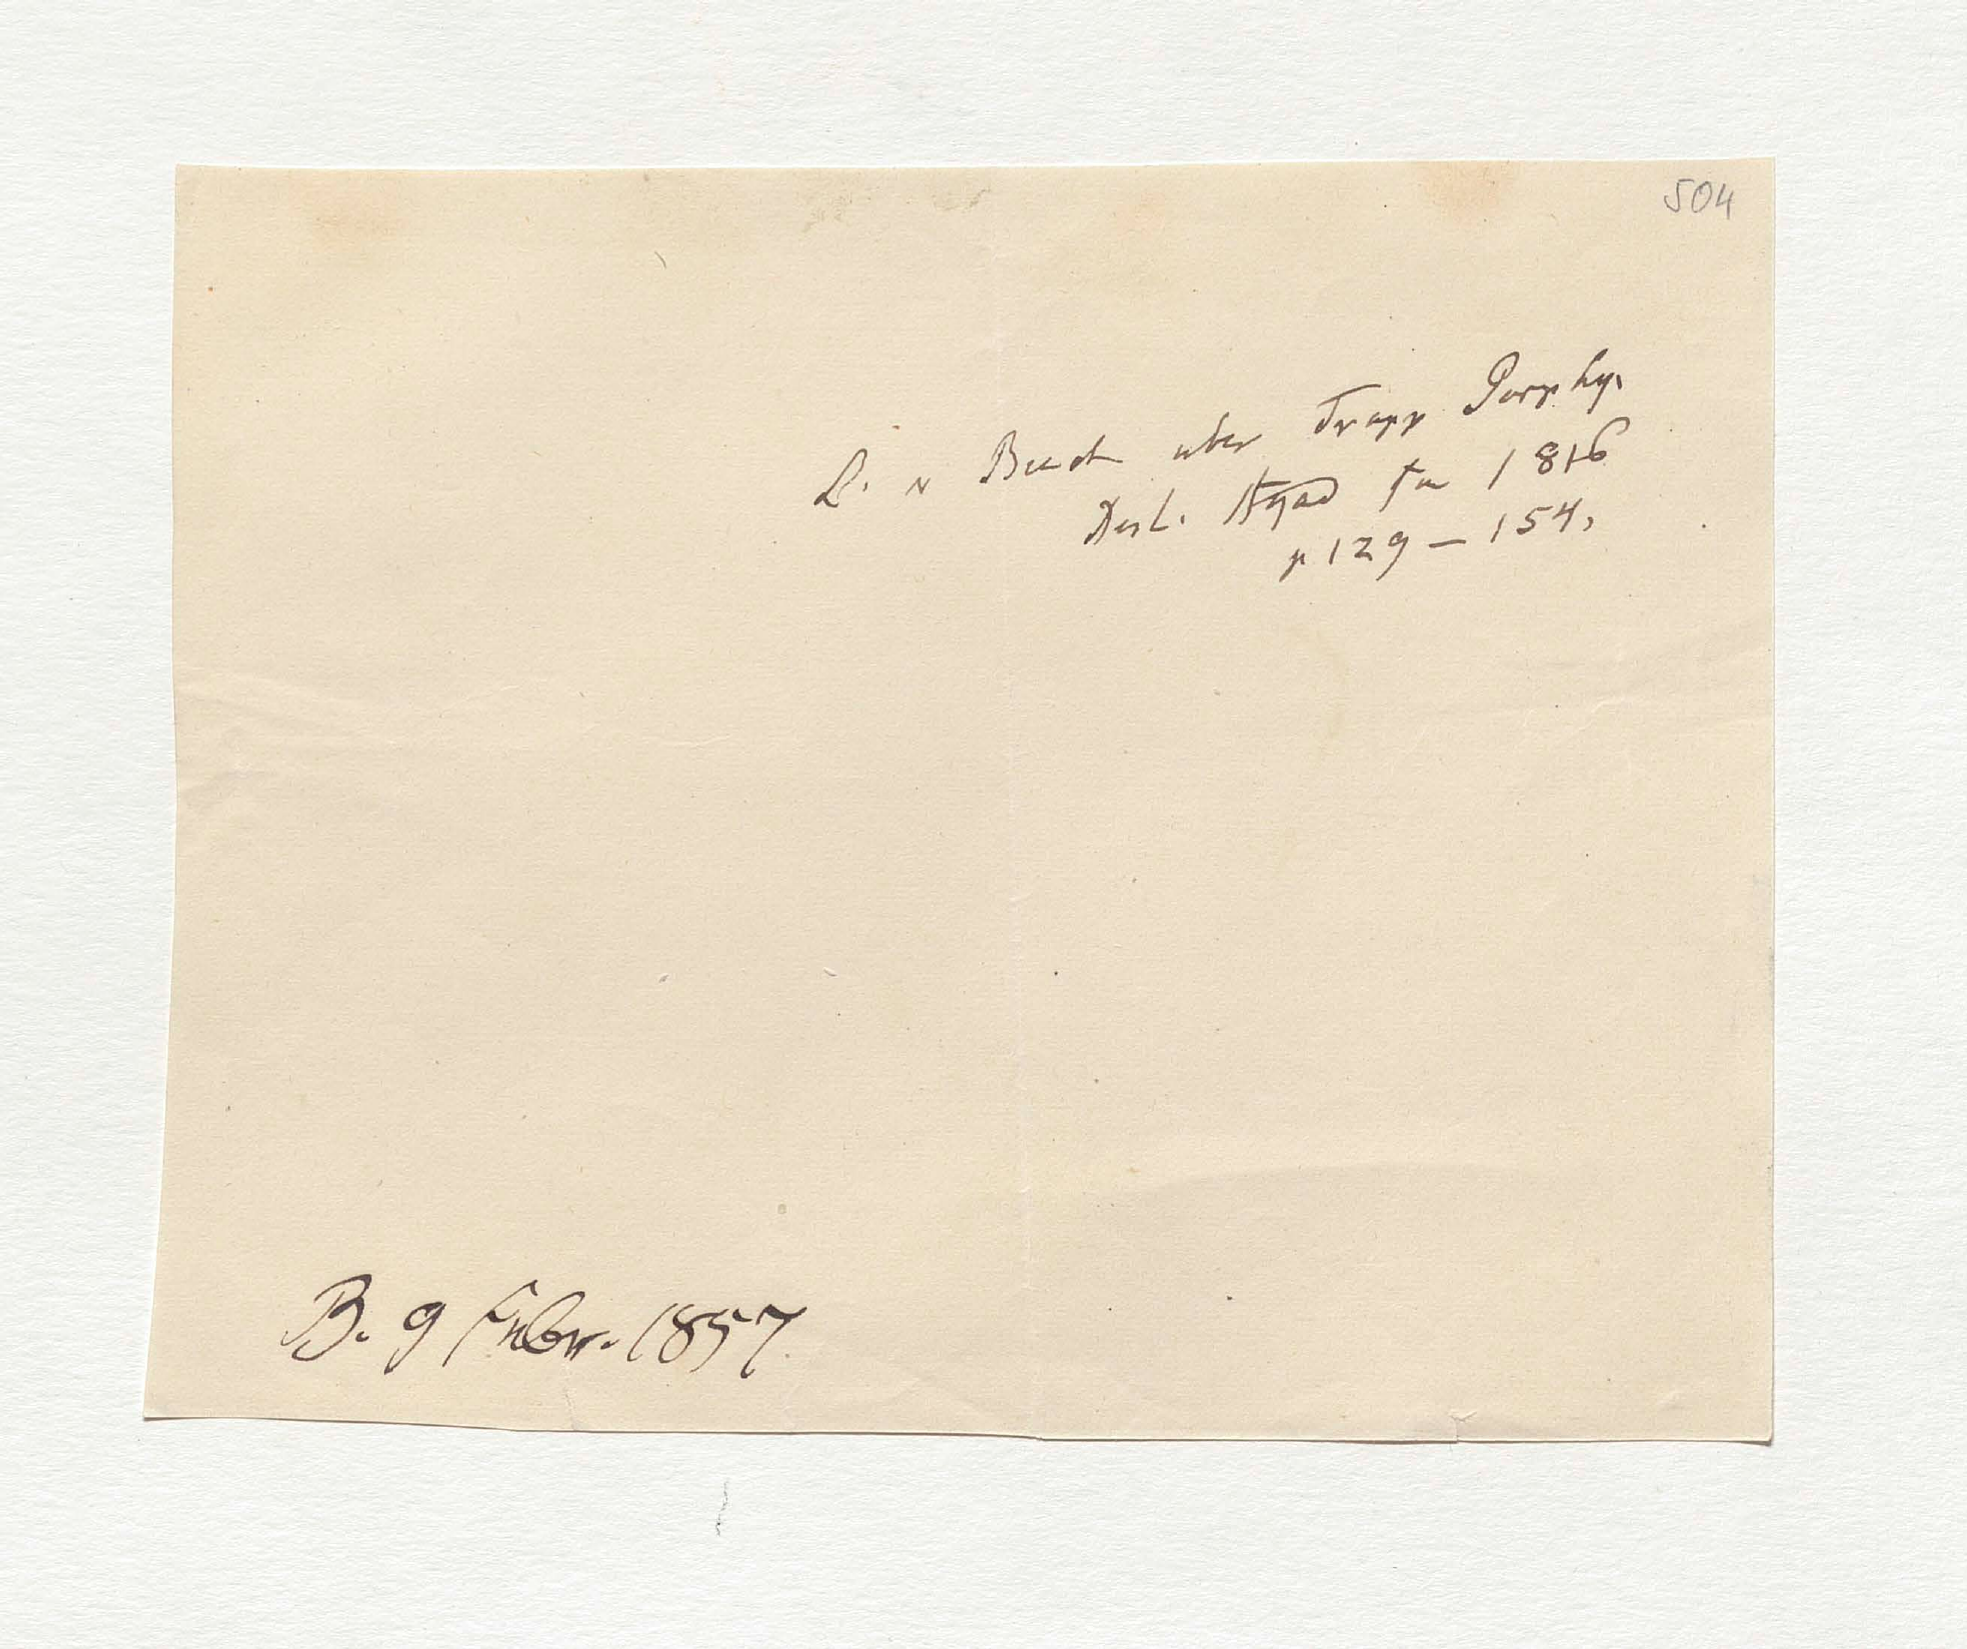 504
L. v Buch über Trapp Porphyr.
Berl. Akad für 1816
p 129 – 154.
B. 9 Febr. 1857